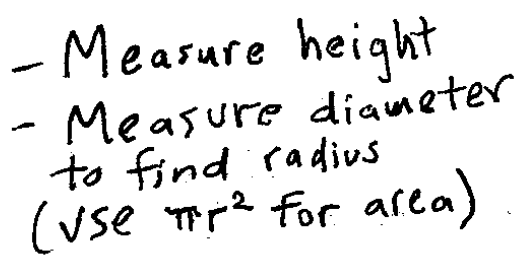 - Measure height
- Measure diameter
to find radius
(use πr² for area)